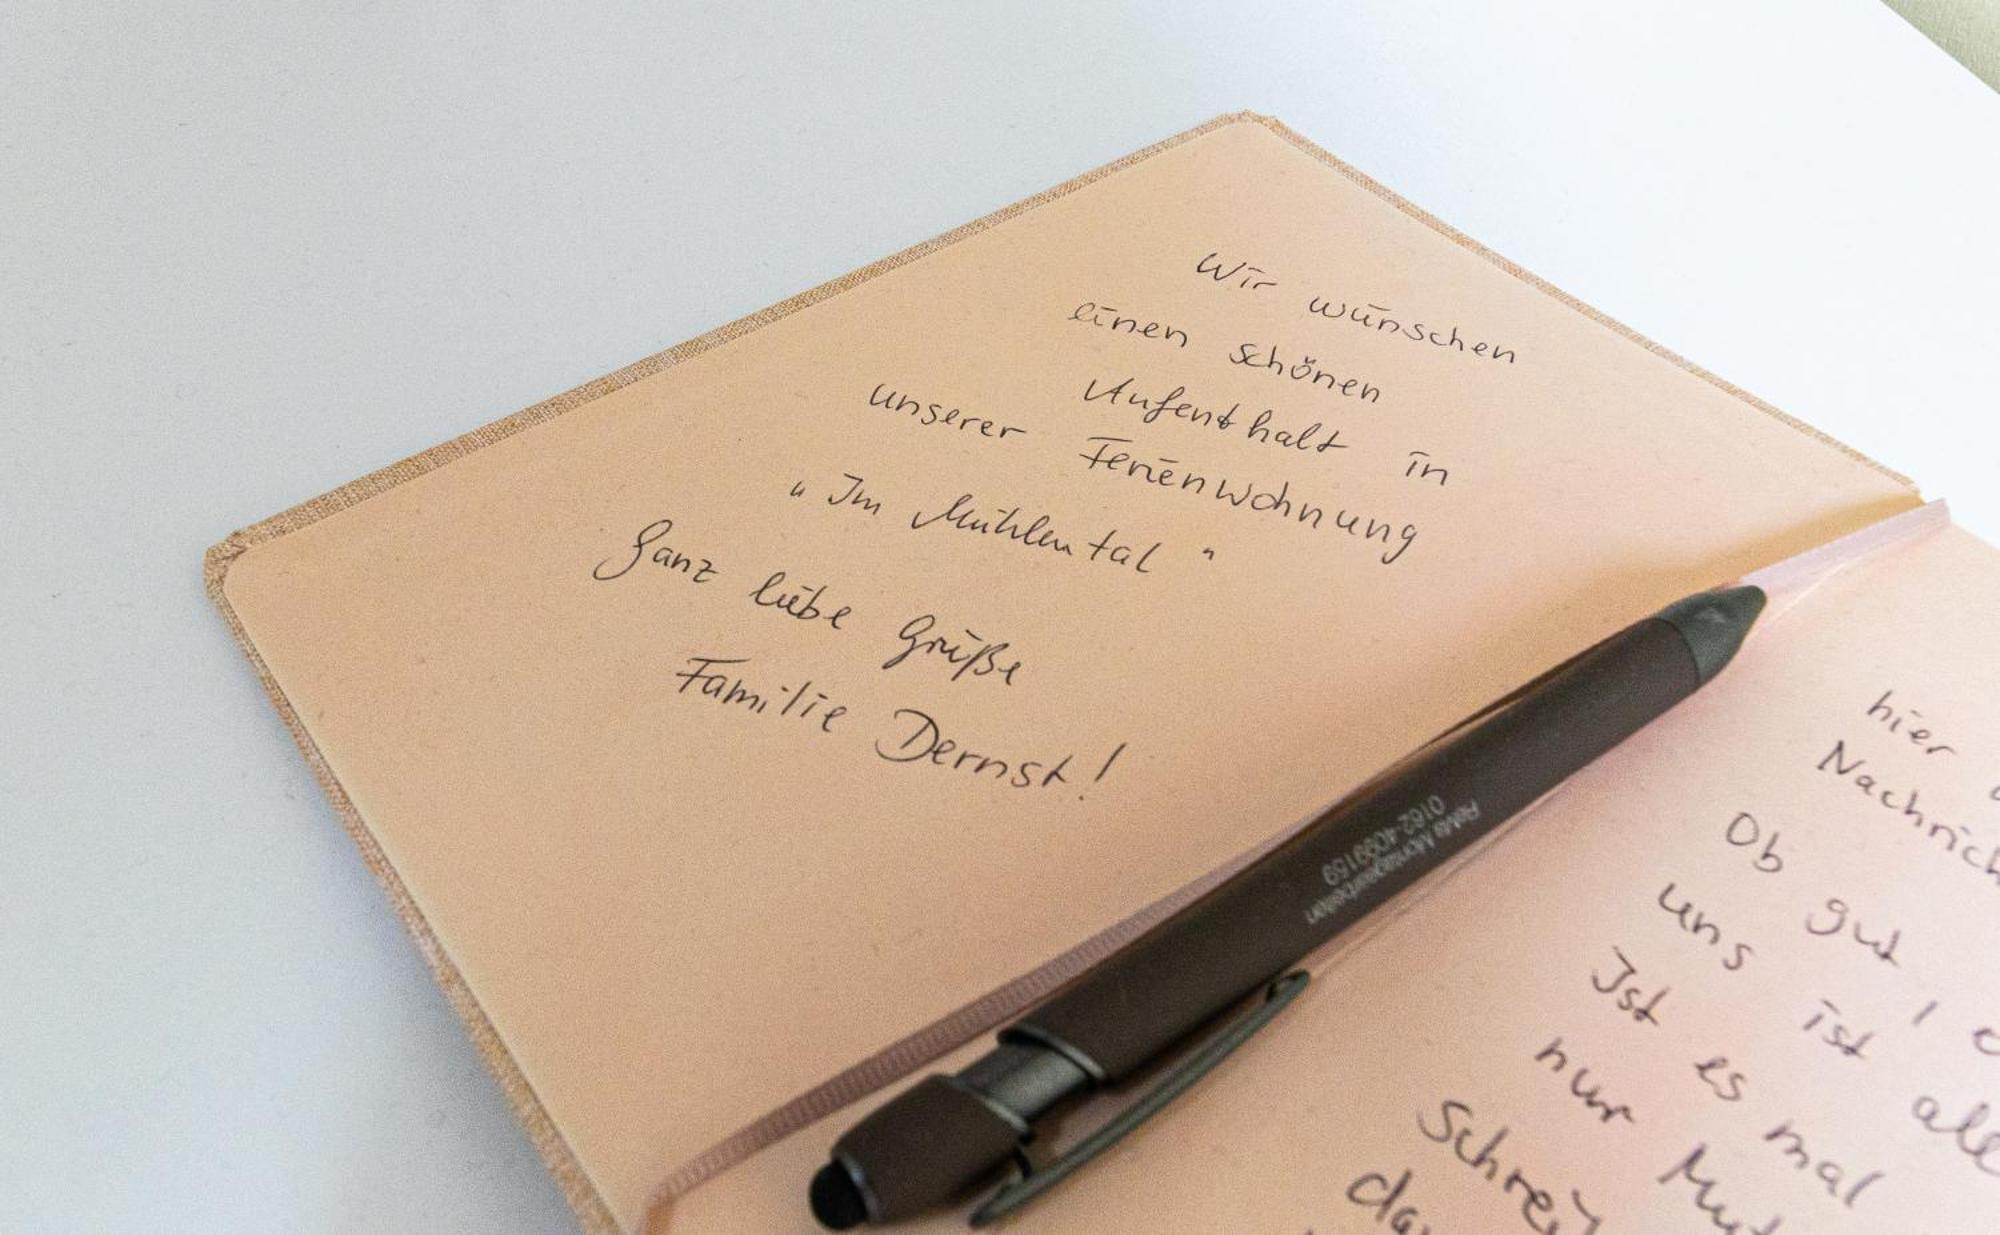 Wir wünschen
einen schönen
Aufenthalt in
unserer Ferienwohnung
"Im Mühlental"
Ganz liebe Grüße
Familie Dernst!
ReMa Montagearbeiten
0162-4099159
hier
Nachrich
Ob gut,
uns ist all
Ist es mal
nur Mut
Schrei